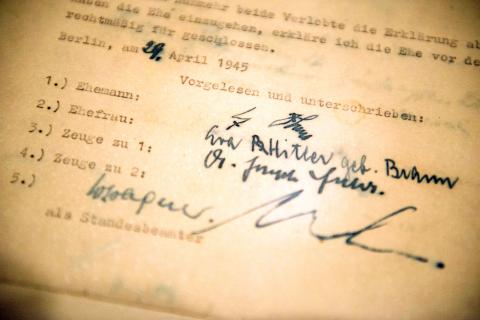 nunmehr beide Verlobte die Erklärung ab
haben die Ehe einzugehen, erkläre ich die Ehe vor de
rechtmäßig für geschlossen.
Berlin, am 29. April 1945
Vorgelesen und unterschrieben:
1.) Ehemann:
2.) Ehefrau: Eva B Hitler geb. Braun
3.) Zeuge zu 1: Dr.
4.) Zeuge zu 2:
5.) Wagner.
als Standesbeamter